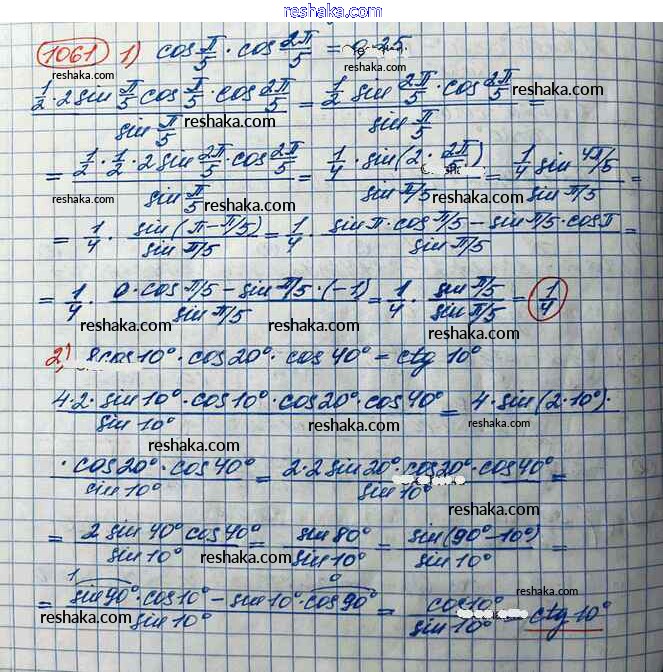 reshaka.com
1061 1) cos π/5 · cos 2π/5 = 0,25
reshaka.com reshaka.com
(1/2 · 2 sin π/5 cos π/5 · cos 2π/5) / (sin π/5) = (1/2 sin 2π/5 · cos 2π/5) / (sin π/5) =
reshaka.com reshaka.com
= (1/2 · 1/2 · 2 sin 2π/5 · cos 2π/5) / (sin π/5) = (1/4 · sin(2 · 2π/5)) / (sin π/5) = (1/4 sin 4π/5) / (sin π/5) =
reshaka.com reshaka.com
= 1/4 · sin(π - π/5) / sin π/5 = 1/4 · (sin π · cos π/5 - sin π/5 · cos π) / sin π/5 =
reshaka.com reshaka.com
= 1/4 · (0 · cos π/5 - sin π/5 · (-1)) / sin π/5 = 1/4 · sin π/5 / sin π/5 = 1/4
reshaka.com reshaka.com
2) 8cos 10° · cos 20° · cos 40° = ctg 10°
reshaka.com
(4 · 2 · sin 10° · cos 10° · cos 20° · cos 40°) / sin 10° = 4 · sin(2 · 10°) ·
reshaka.com reshaka.com
(· cos 20° · cos 40°) / sin 10° = (2 · 2 sin 20° · cos 20° · cos 40°) / sin 10° =
reshaka.com
= (2 sin 40° cos 40°) / sin 10° = sin 80° / sin 10° = sin(90° - 10°) / sin 10° =
reshaka.com reshaka.com
1 0
= (sin 90° · cos 10° - sin 10° · cos 90°) / sin 10° = cos 10° / sin 10° = ctg 10°
reshaka.com reshaka.com